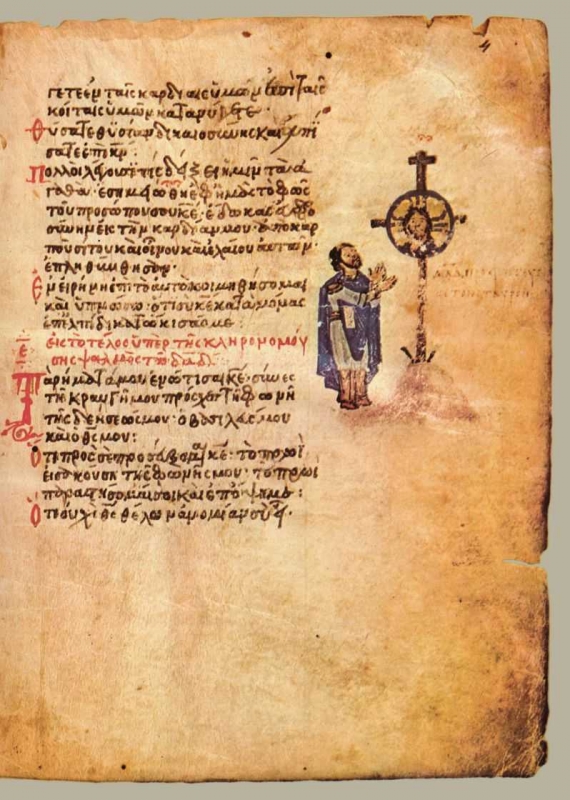 γετε ἐν ταῖς καρδίαις ὑμῶν ἐπὶ ταῖς
κοίταις ὑμῶν κατανύγητε·
Θύσατε θυσίαν δικαιοσύνης καὶ ἐλπί
σατε ἐπὶ κν·
Πολλοὶ λέγουσι τίς δείξει ἡμῖν τὰ ἀ
γαθά· ἐσημειώθη ἐφ ἡμᾶς τὸ φῶς
τοῦ προσώπου σου κε· ἔδωκας εὐφρο
σύνην εἰς τὴν καρδίαν μου· ἀπὸ καρ
ποῦ σίτου καὶ οἴνου καὶ ἐλαίου αὐτῶν·
ἐπληθύνθησαν·
Ἐν εἰρήνη ἐπὶ τὸ αὐτὸ κοιμηθήσομαι
καὶ ὑπνώσω· ὅτι σὺ κε κατὰ μόνας
ἐπ ἐλπίδι κατώκισάς με·
Ε εἰς τὸ τέλος ὑπὲρ τῆς κληρονομού
σης ψαλμὸς τῶ δαδ
Τὰ ῥήματά μου ἐνώτισαι κε· σύνες
τῆς κραυγῆς μου πρόσχες τῆ φωνῆ
τῆς δεήσεώς μου· ὁ βασιλεύς μου
καὶ ὁ θς μου:
Ὅτι πρὸς σὲ προσεύξομαι κε· τὸ πρωῒ
εἰσακούση τῆς φωνῆς μου· τὸ πρωῒ
παραστήσομαί σοι καὶ ἐπόψει με:
Ὅτι οὐχὶ θς θέλων ἀνομίαν σὺ εἶ·